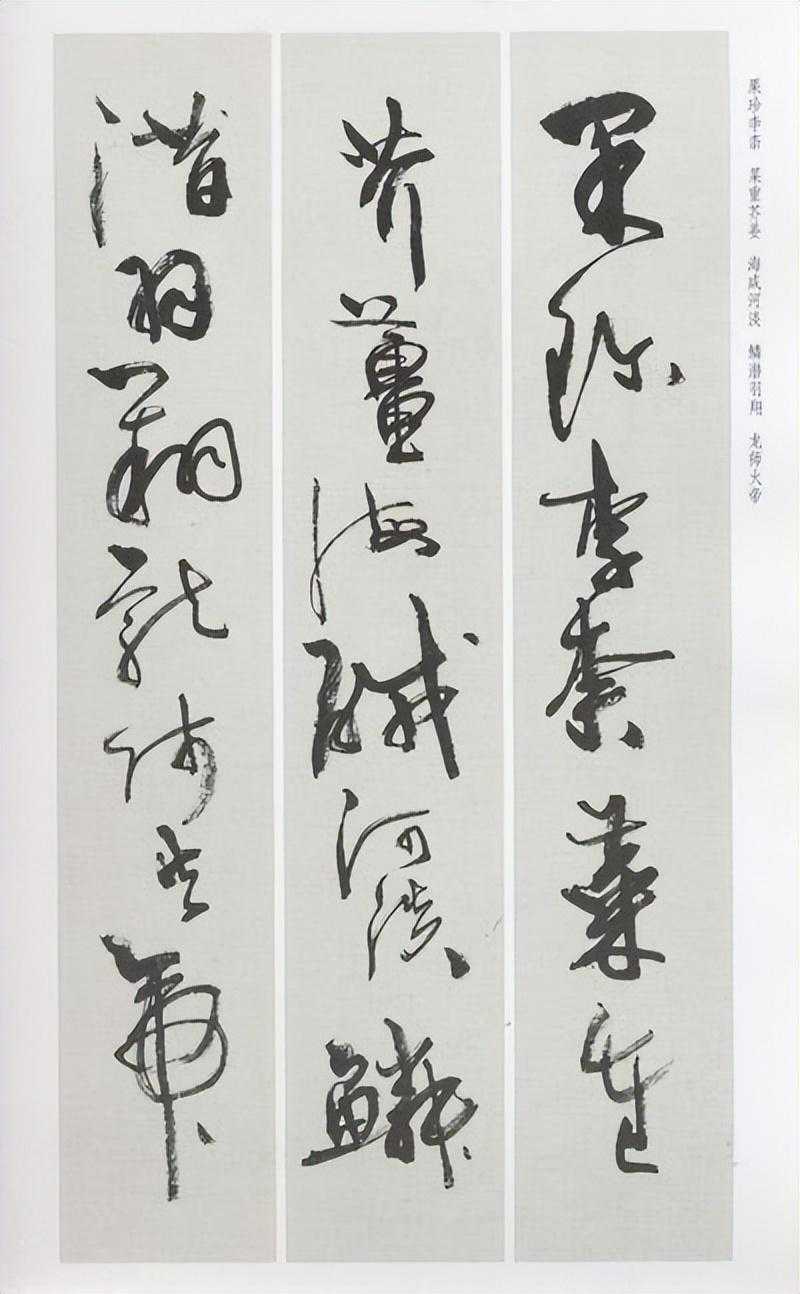 果珍李柰 菜重芥姜 海咸河淡 鳞潜羽翔 龙师火帝
果珍李柰菜重
芥薑海鹹河淡鱗
潛羽翔龍師火帝